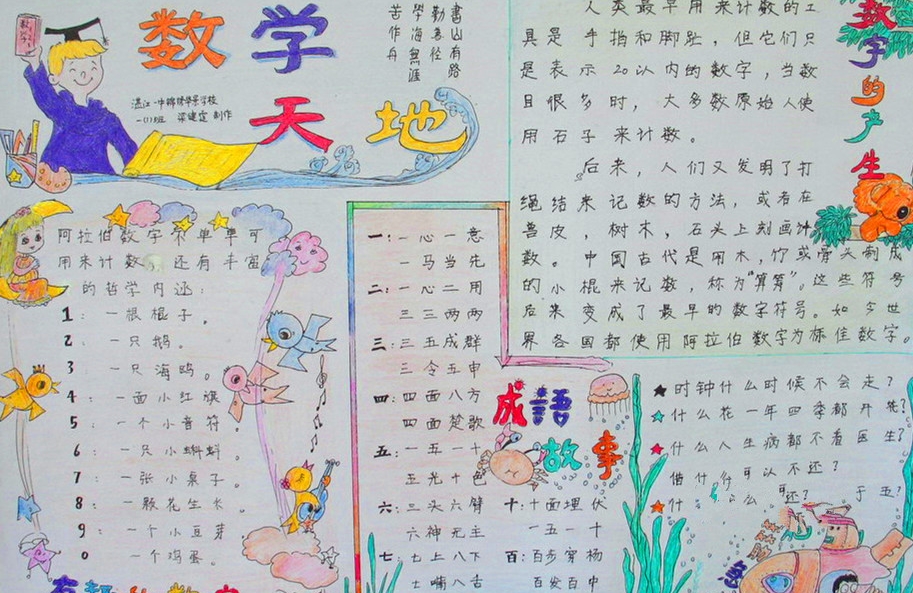 数学
天地
書山有路
勤為径
學海無涯
苦作舟
湛江一中錦綉华景学校
一(1)班 梁健定 制作
数字的产生
人类最早用来计数的工
具是手指和脚趾，但它们只
是表示20以内的数字，当数
目很多时，大多数原始人使
用石子来计数。
后来，人们又发明了打
绳结来记数的方法，或者在
兽皮，树木，石头上刻画计
数。中国古代是用木，竹或骨头制成
的小棍来记数，称为“算筹”。这些符号
后来变成了最早的数字符号。如今世
界各国都使用阿拉伯数字为标准数字。
阿拉伯数字不单单可
用来计数，还有丰富
的哲学内涵：
1：一根棍子。
2：一只鹅。
3：一只海鸥。
4：一面小红旗
5：一个小音符。
6：一只小蝌蚪。
7：一张小桌子。
8：一颗花生米。
9：一个小豆芽
0 一个鸡蛋。
一：一心一意
一马当先
二：一心二用
三三两两
三：三五成群
三令五申
四：四面八方
四面楚歌
五：一五一十
五光十色
六：三头六臂
六神无主
七：七上八下
七嘴八舌
成語
故事
十：十面埋伏
一五一十
百：百步穿杨
百发百中
时钟什么时候不会走？
什么花一年四季都开花？
什么人生病都不看医生？
借什么可以不还？
什么